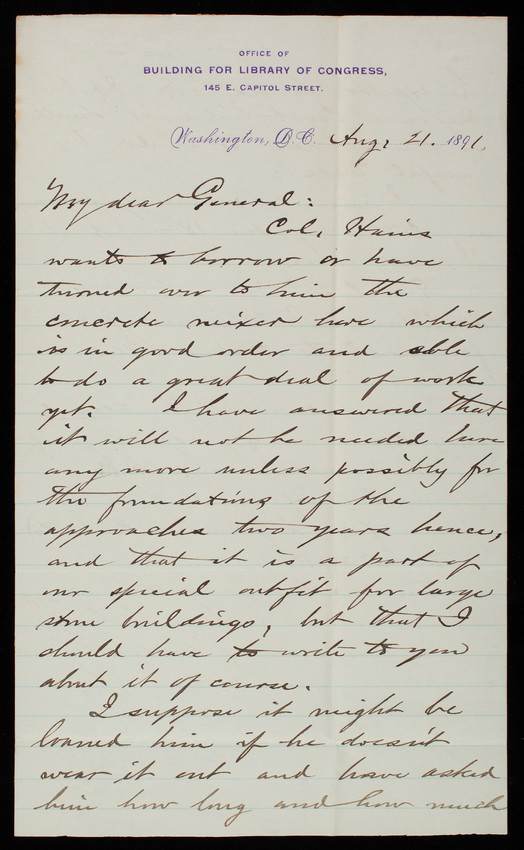 OFFICE OF
BUILDING FOR LIBRARY OF CONGRESS,
145 E. CAPITOL STREET.
Washington, D.C. Aug. 21. 1891.
My dear General:
Col. Hains
wants to borrow or have
turned over to him the
concrete mixer here which
is in good order and able
to do a great deal of work
yet. I have answered that
it will not be needed here
any more unless possibly for
the foundations of the
approaches two years hence,
and that it is a part of
our special outfit for large
stone buildings, but that I
should have to write to you
about it of course.
I suppose it might be
loaned him if he doesn't
wear it out and have asked
him how long and how much